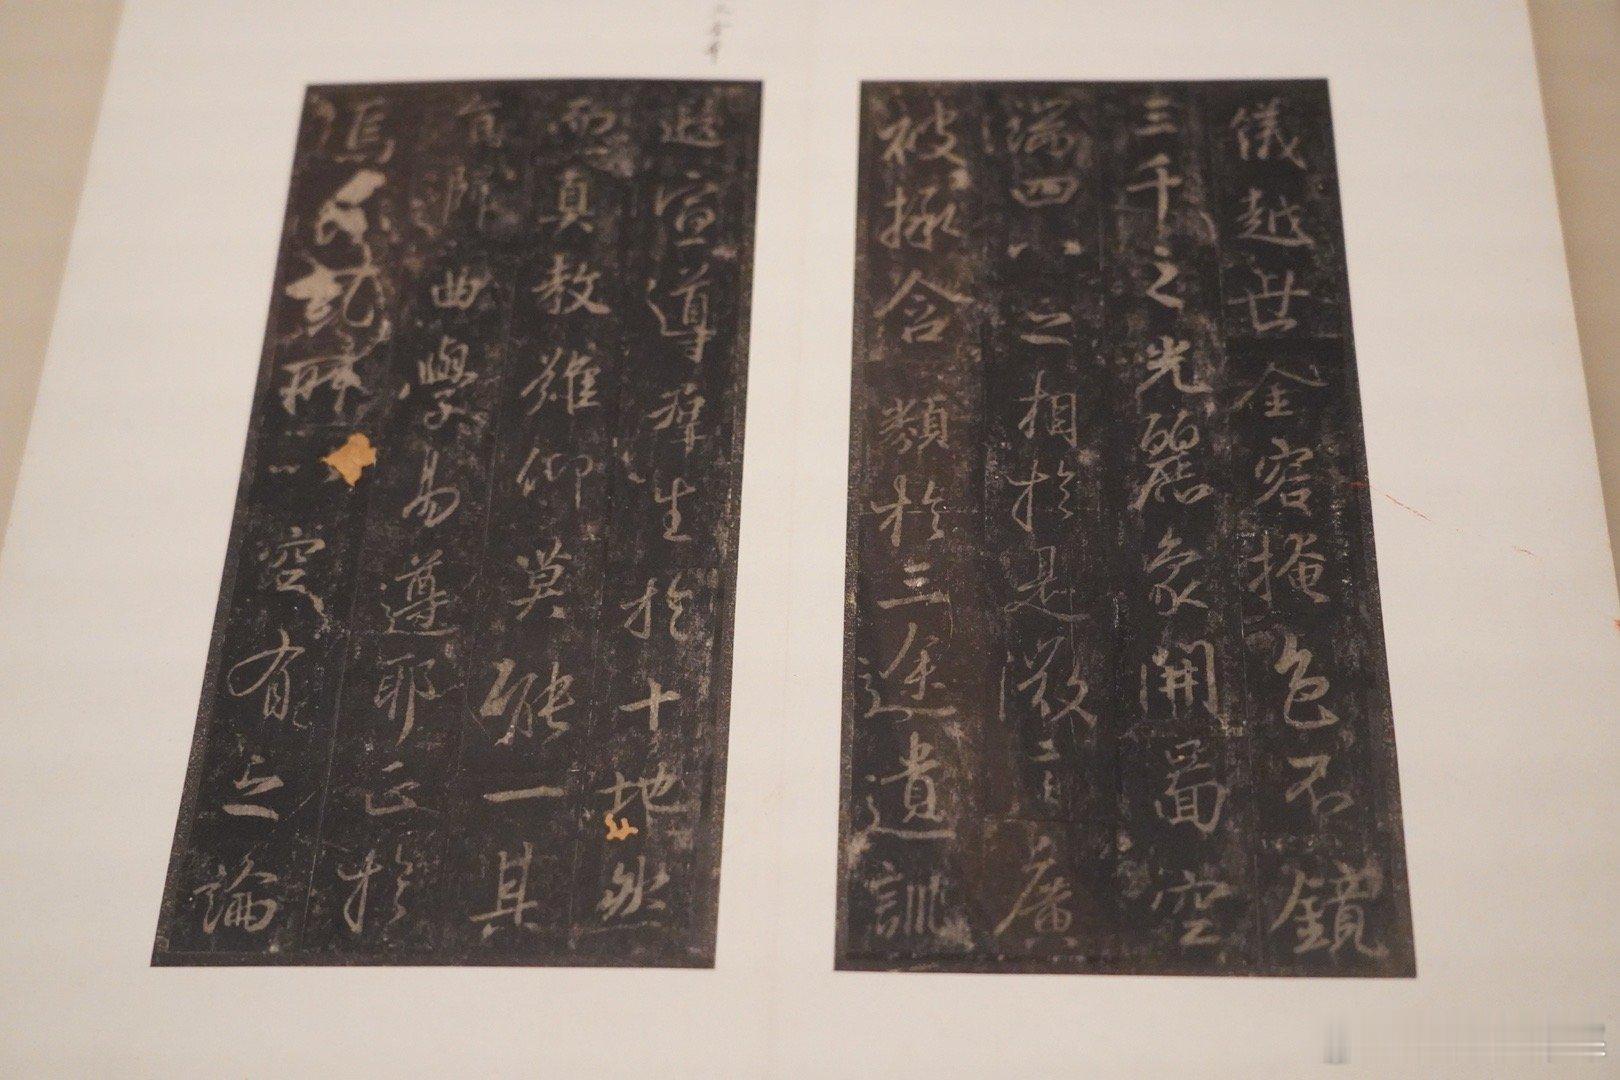 儀越世金容掩色不鏡
三千之光麗象開啚空
端四八之相於是微言廣
被拯含類於三途遺訓
遐宣導群生於十地然
而真教難仰莫能一其
旨歸曲學易遵耶正於
焉紛糺所以空有之論